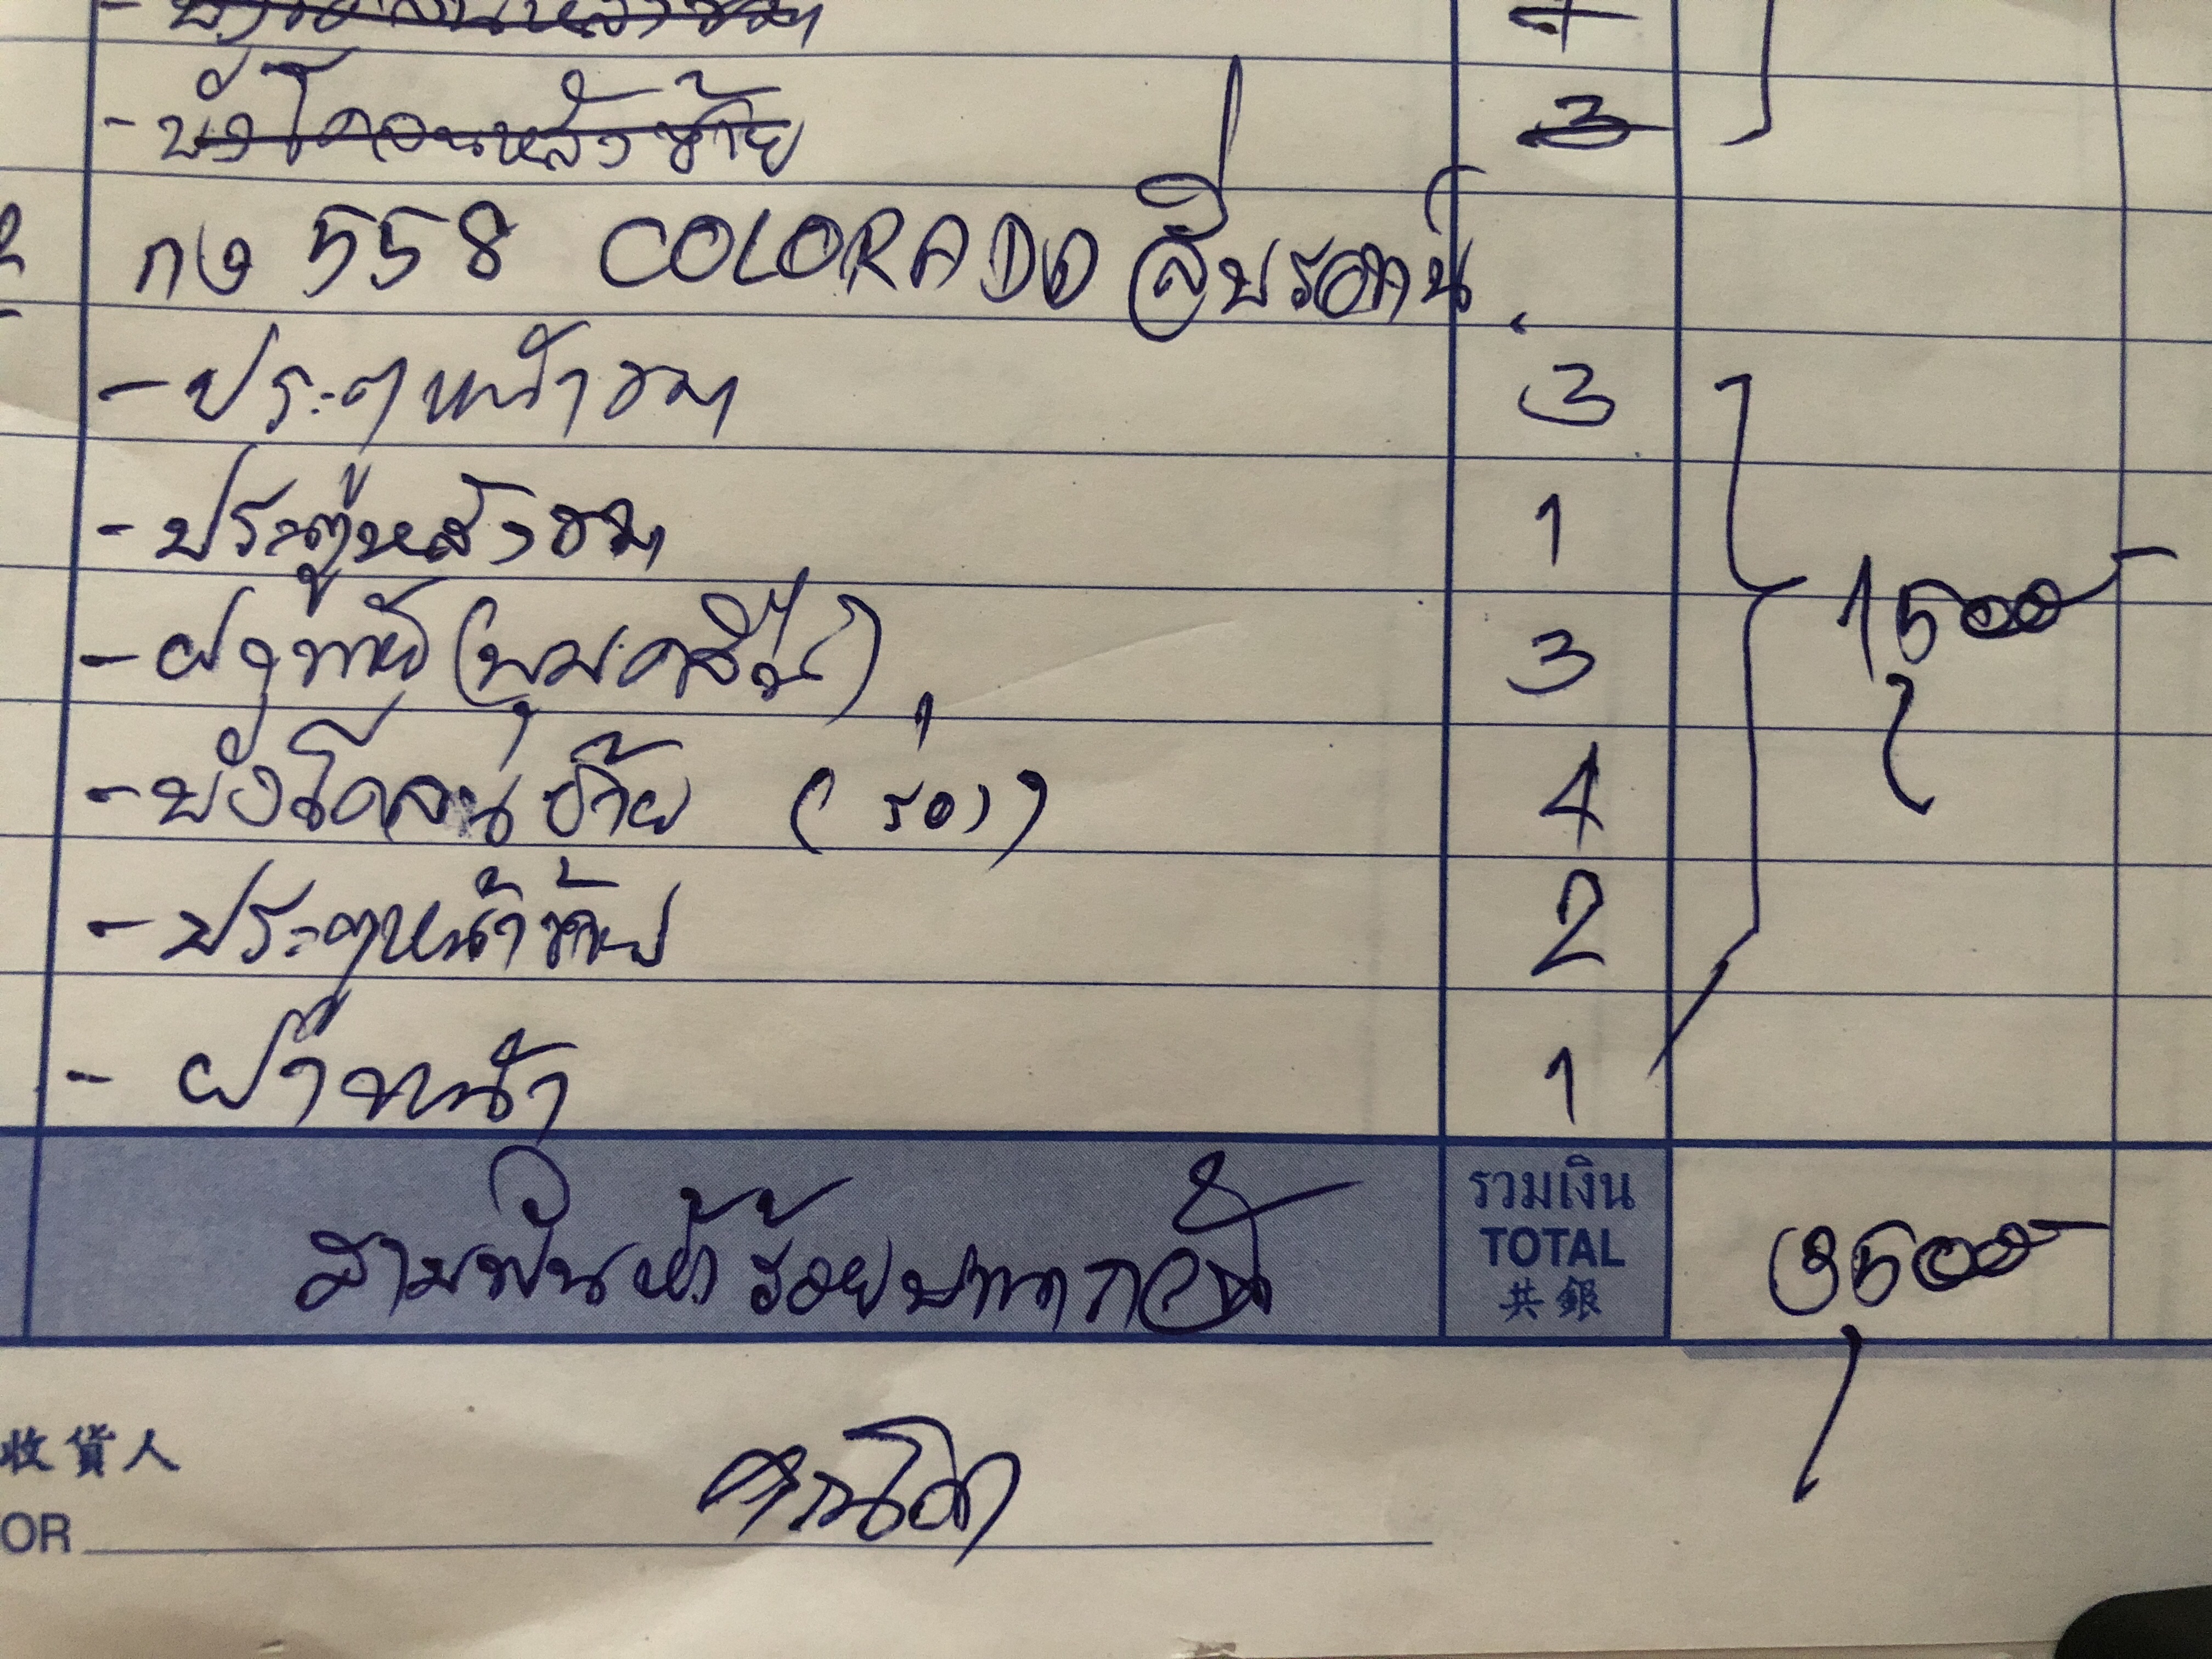 - บังโคลนหลังซ้าย 3
กง 558 COLORADO สีบรอนซ์
- ประตูหน้าขวา 3
- ประตูหลังขวา 1
- ฝาท้าย 3
1500
- บังโคลน ซ้าย 4
- ประตูหน้าซ้าย 2
- ฝาหน้า 1
สามพันห้าร้อยบาทถ้วน
รวมเงิน
TOTAL
共銀
3500
收貨人
OR